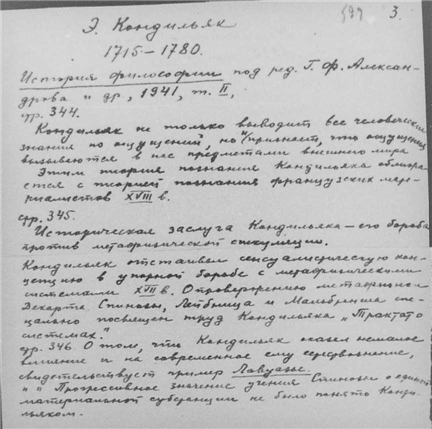 599 3.
Э. Кондильяк
1715–1780.
История философии под ред. Г. Ф. Алексан-
дрова и др, 1941, т. II,
стр. 344.
Кондильяк не только выводит все человеческие
знания из ощущений, но и признает, что ощущения
вызываются в нас предметами внешнего мира.
Этим теория познания Кондильяка сближа-
ется с теорией познания французских мате-
риалистов XVIII в.
стр. 345.
Историческая заслуга Кондильяка – его борьба
против метафизической спекуляции.
Кондильяк отстаивал сенсуалистическую кон-
цепцию в упорной борьбе с метафизическими
системами XVII в. Опровержению метафизики
Декарта, Спинозы, Лейбница и Мальбранша спе-
циально посвящен труд Кондильяка „Трактат о
системах".
стр. 346 О том, что Кондильяк оказал немалое
влияние и на современное ему
свидетельствует пример Лавуазье.
" " Прогрессивное значение учения Спинозы о единой
материальной субстанции не было понято Конди-
льяком.